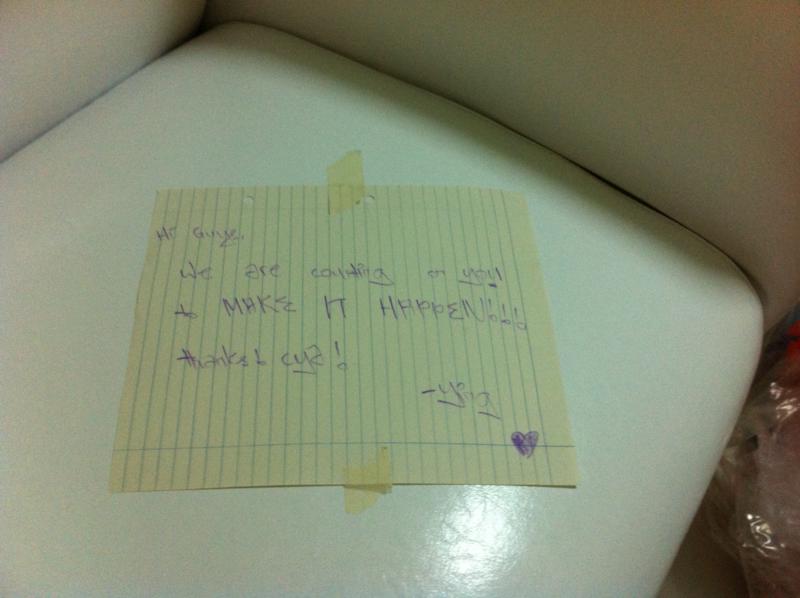 Hi Guys,
We are counting on you!
to MAKE IT HAPPEN!!!
thanks! cya!
-ying